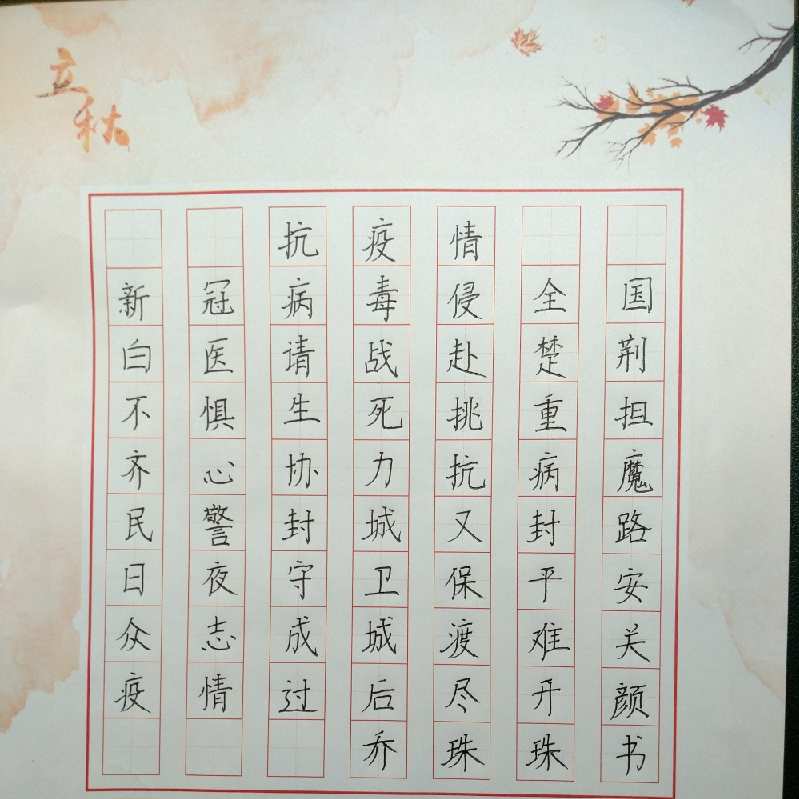 立秋
抗疫情
新冠病毒侵全国
白医请战赴楚荆
不惧生死挑重担
齐心协力抗病魔
民警封城又封路
日夜守卫保平安
众志成城渡难关
疫情过后尽开颜
乔珠珠书